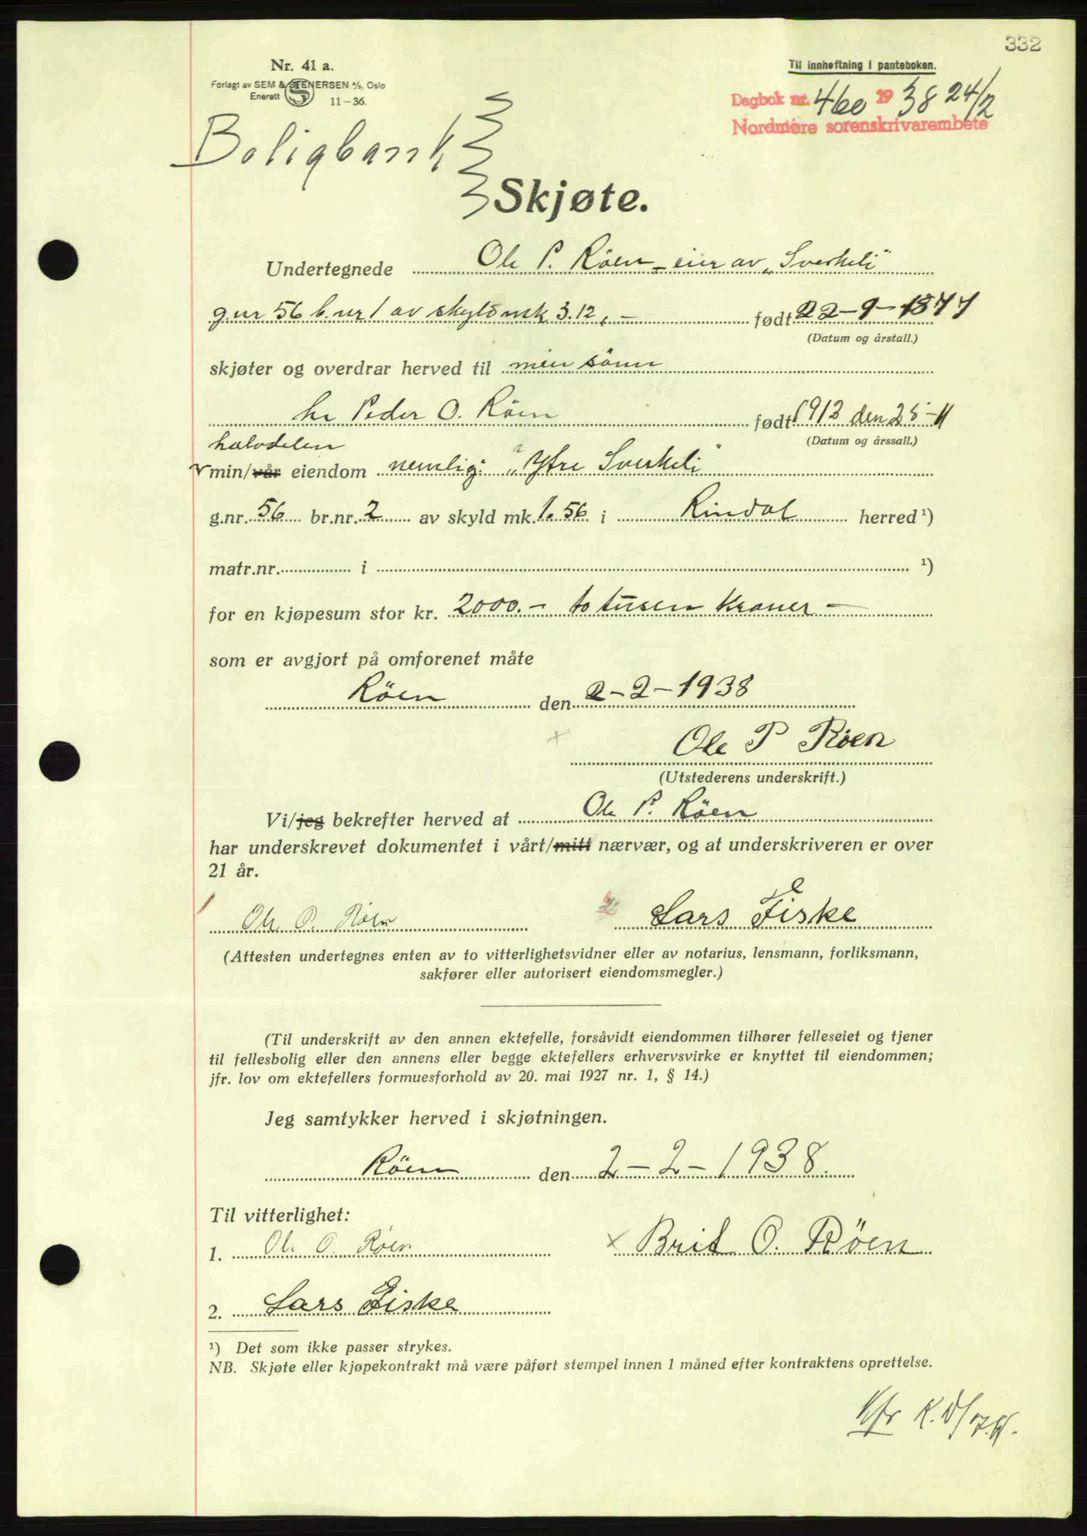 332
Nr. 41 a.
Forlagt av SEM & STENERSEN A/S, Oslo
Enerett 11-36.
Til innheftning i panteboken.
Dagbok nr. 460 1938 24/2
Nordmøre sorenskrivarembete
Boligbank
Skjøte.
Undertegnede Ole P. Røen - eier av "Sverkeli"
g.nr 56 b.nr 1 av skyld mk 3.12, - født 22-9-1877
(Datum og årstall.)
skjøter og overdrar herved til min sønn
hr Peder O. Røen født 1912 den 25-11
(Datum og årssall.)
halvdelen
v min/vår eiendom nemlig: "Ytre Sverkeli"
g.nr. 56 br.nr. 2 av skyld mk. 1.56 i Rindal herred ¹)
matr.nr. i ¹)
for en kjøpesum stor kr. 2000.- to tusen Kroner -
som er avgjort på omforenet måte
Røen den 2-2-1938
Ole P Røen
(Utstederens underskrift.)
Vi/jeg bekrefter herved at Ole P. Røen
har underskrevet dokumentet i vårt/mitt nærvær, og at underskriveren er over
21 år.
Ole O. Røen Lars E Fiske
(Attesten undertegnes enten av to vitterlighetsvidner eller av notarius, lensmann, forliksmann,
sakfører eller autorisert eiendomsmegler.)
(Til underskrift av den annen ektefelle, forsåvidt eiendommen tilhører felleseiet og tjener
til fellesbolig eller den annens eller begge ektefellers erhvervsvirke er knyttet til eiendommen;
jfr. lov om ektefellers formuesforhold av 20. mai 1927 nr. 1, § 14.)
Jeg samtykker herved i skjøtningen.
Røen den 2-2-1938.
Til vitterlighet:
1. Ole O. Røen x Brit O. Røen
2. Lars E Fiske
¹) Det som ikke passer strykes.
NB. Skjøte eller kjøpekontrakt må være påført stempel innen 1 måned efter kontraktens oprettelse.